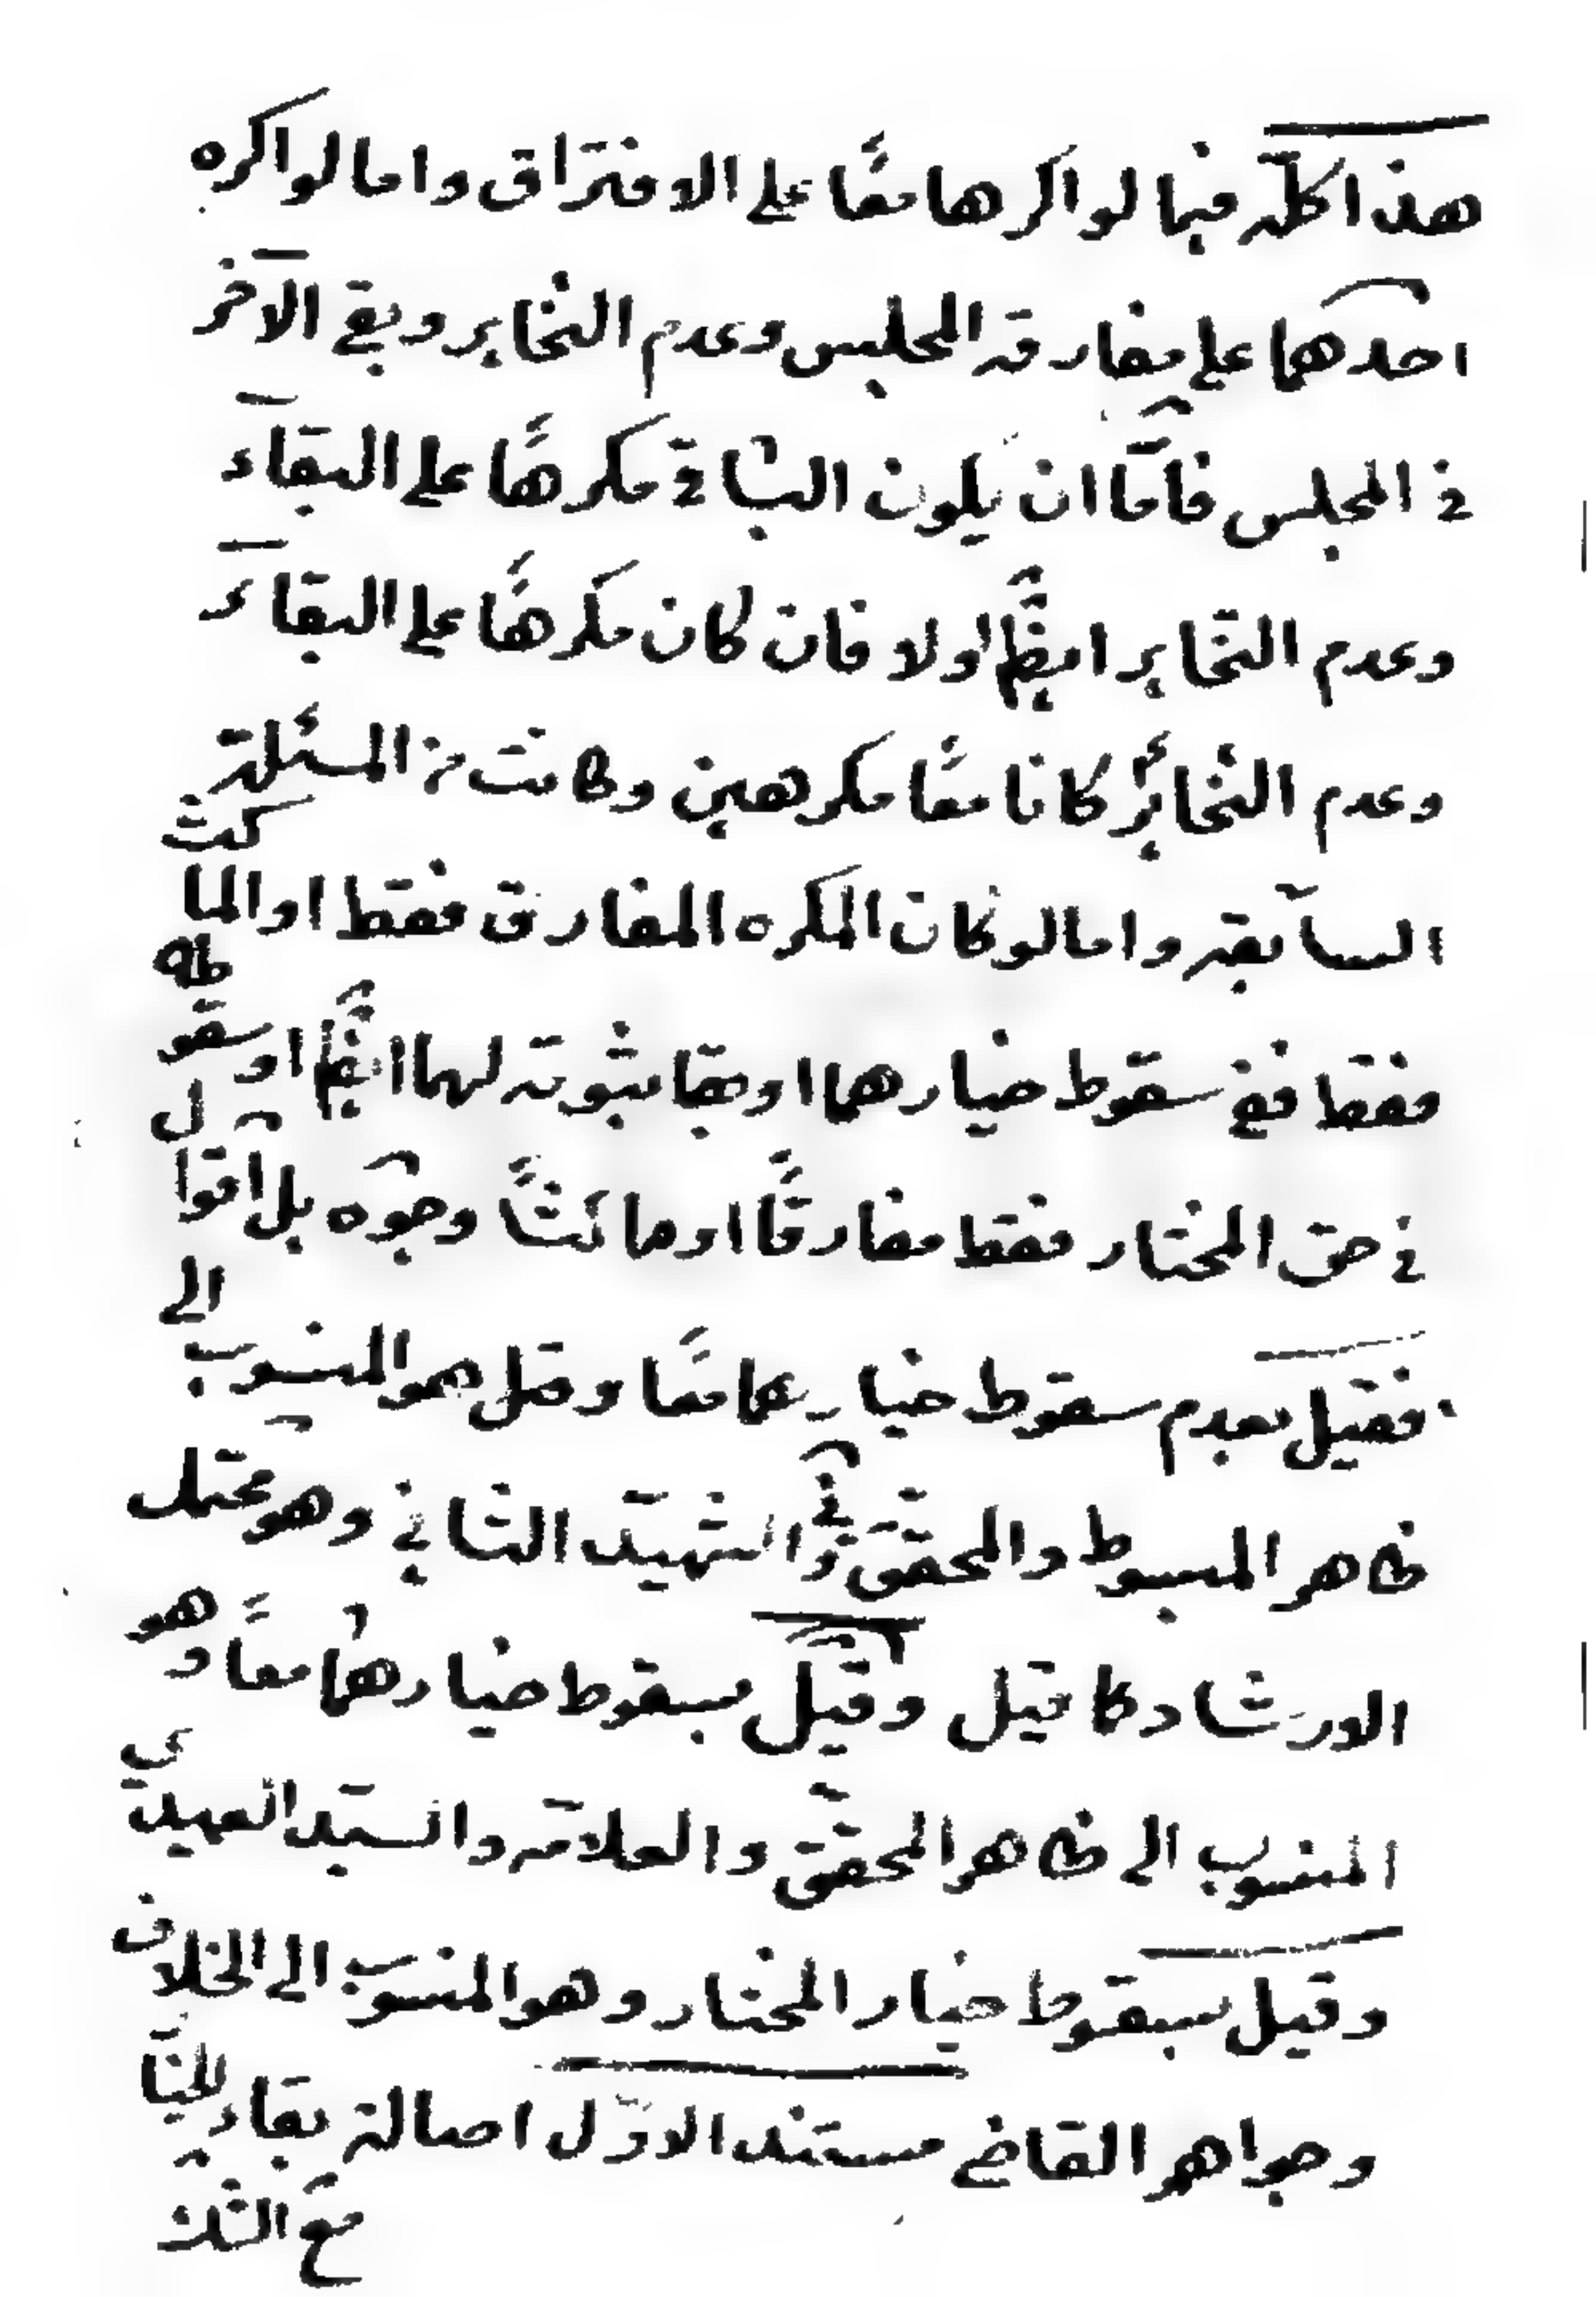 هذا كلّه فيما لو اكرها معًا على الافتراق واما لو اكره
احدهما على مفارقة المجلس وعدم التخاير وبقى الآخر
في المجلس فامّا ان يكون الباقي مكرهًا على البقآء
وعدم التخاير ايضًا اولا فان كان مكرهًا على البقآء
وعدم التخاير كانا معًا مكرهين وكانت من المسئلة
السابقة واما لو كان المكره المفارق فقط او الماكث
فقط ففي سقوط خيارهما او بقا ثبوته لهما ايضًا او سقوطه
في حق المختار فقط مفارقًا او ماكثًا وجوه بل اقوال
فقيل بعدم سقوط خيارهما معًا وقيل هو المنسوب الى
ظاهر المبسوط والمحقق والشهيد الثاني وهو محتمل
الارشاد كما قيل وقيل بسقوط خيارهما معًا وهو
المنسوب الى ظاهر المحقق والعلامة والسيّد العميدى
وقيل بسقوط خيار المختار وهو المنسوب الى الخلاف
وجواهر القاضي مستند الاوّل اصالة بقاء الخيار
مع الشك